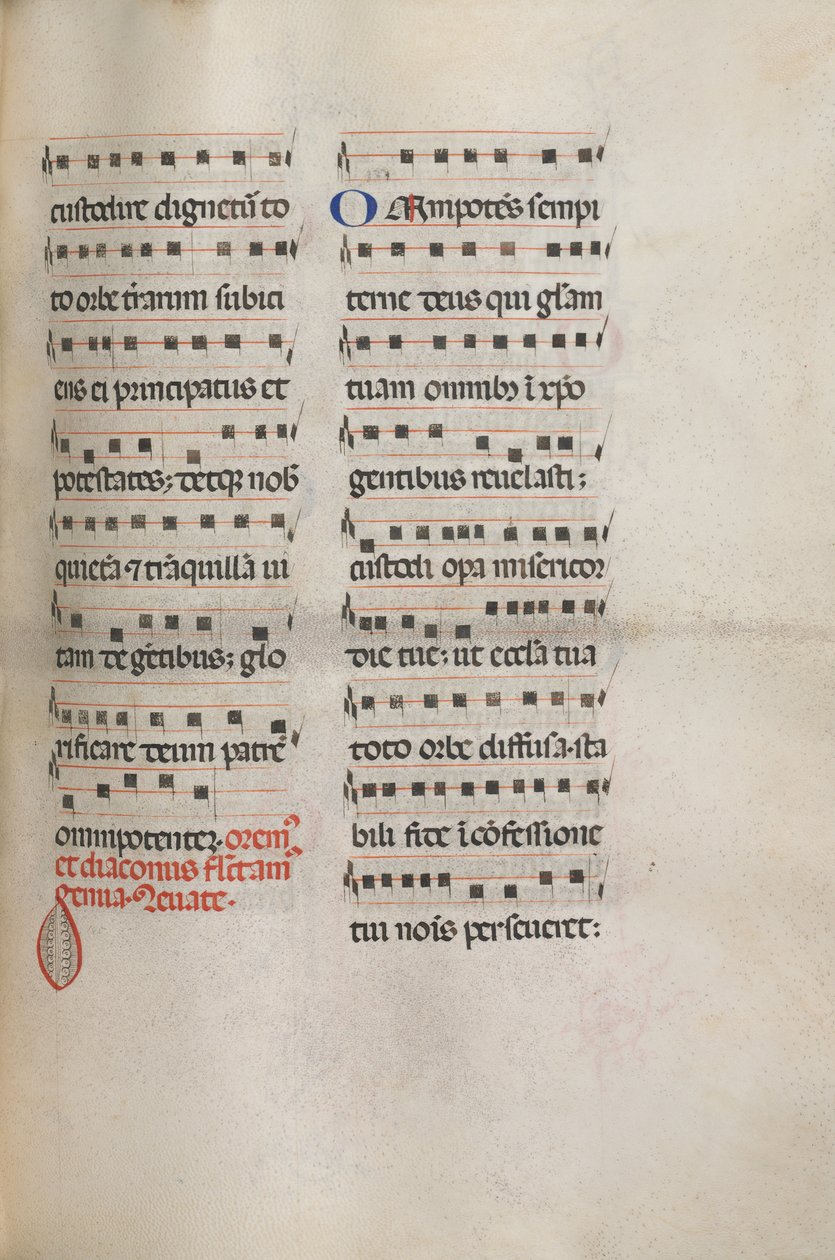 custodire dignetũ to
to orbe tr̃arum subici
ens ei principatus et
potestates; detqꝫ nob̃
quietã ⁊ trãquillã ui
tam degẽtibus; glo
rificare deum patrẽ
omnipotentez. orem⁹
et diaconus flectam⁹
genua. Leuate.
OMnipotẽs sempi
terne deus qui gl̃am
tuam omnibꝫ ĩ xp̃o
gentibus reuelasti;
custodi opa misericor
die tue; ut eccl̃a tua
toto orbe diffusa. sta
bili fide ĩ cõfessione
tui noĩs perseueret: